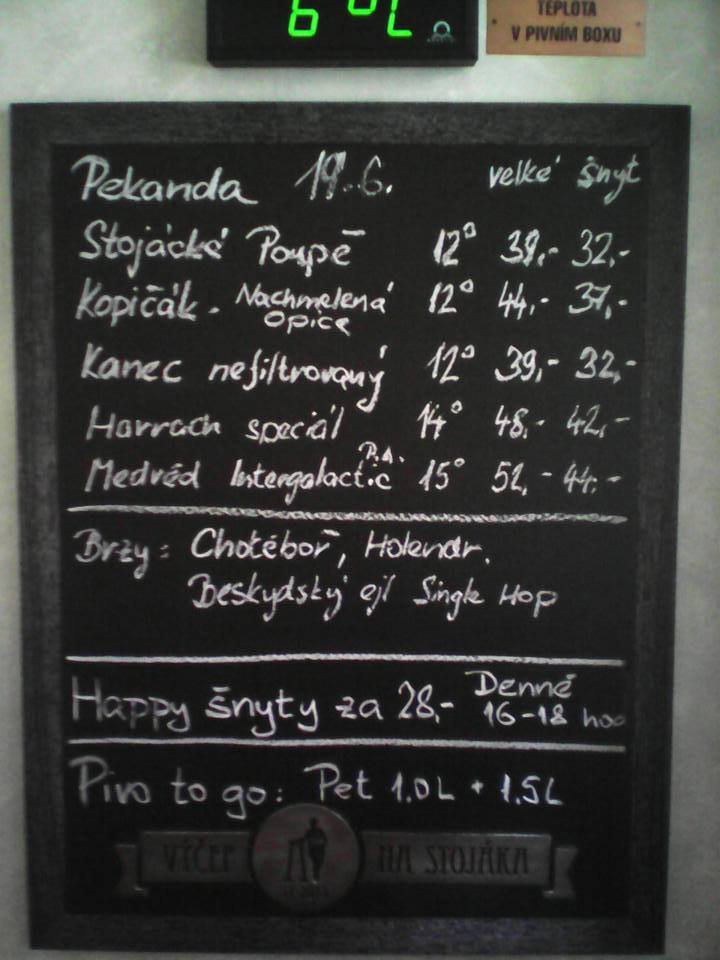 6°C
TEPLOTA
V PIVNÍM BOXU
Pekanda 19.6. velké šnyt
Stojácké Poupě 12° 39,- 32,-
Kopičák - Nachmelená Opice 12° 44,- 37,-
Kanec nefiltrovaný 12° 39,- 32,-
Harrach speciál 14° 48,- 42,-
Medvěd Intergalactic P.A. 15° 52,- 44,-
Brzy: Chotěboř, Holendr,
Beskydský ejl Single Hop
Happy šnyty za 28,- Denně 16-18 hod
Pivo to go: Pet 1.0L + 1.5L
VÝČEP NA STOJÁKA